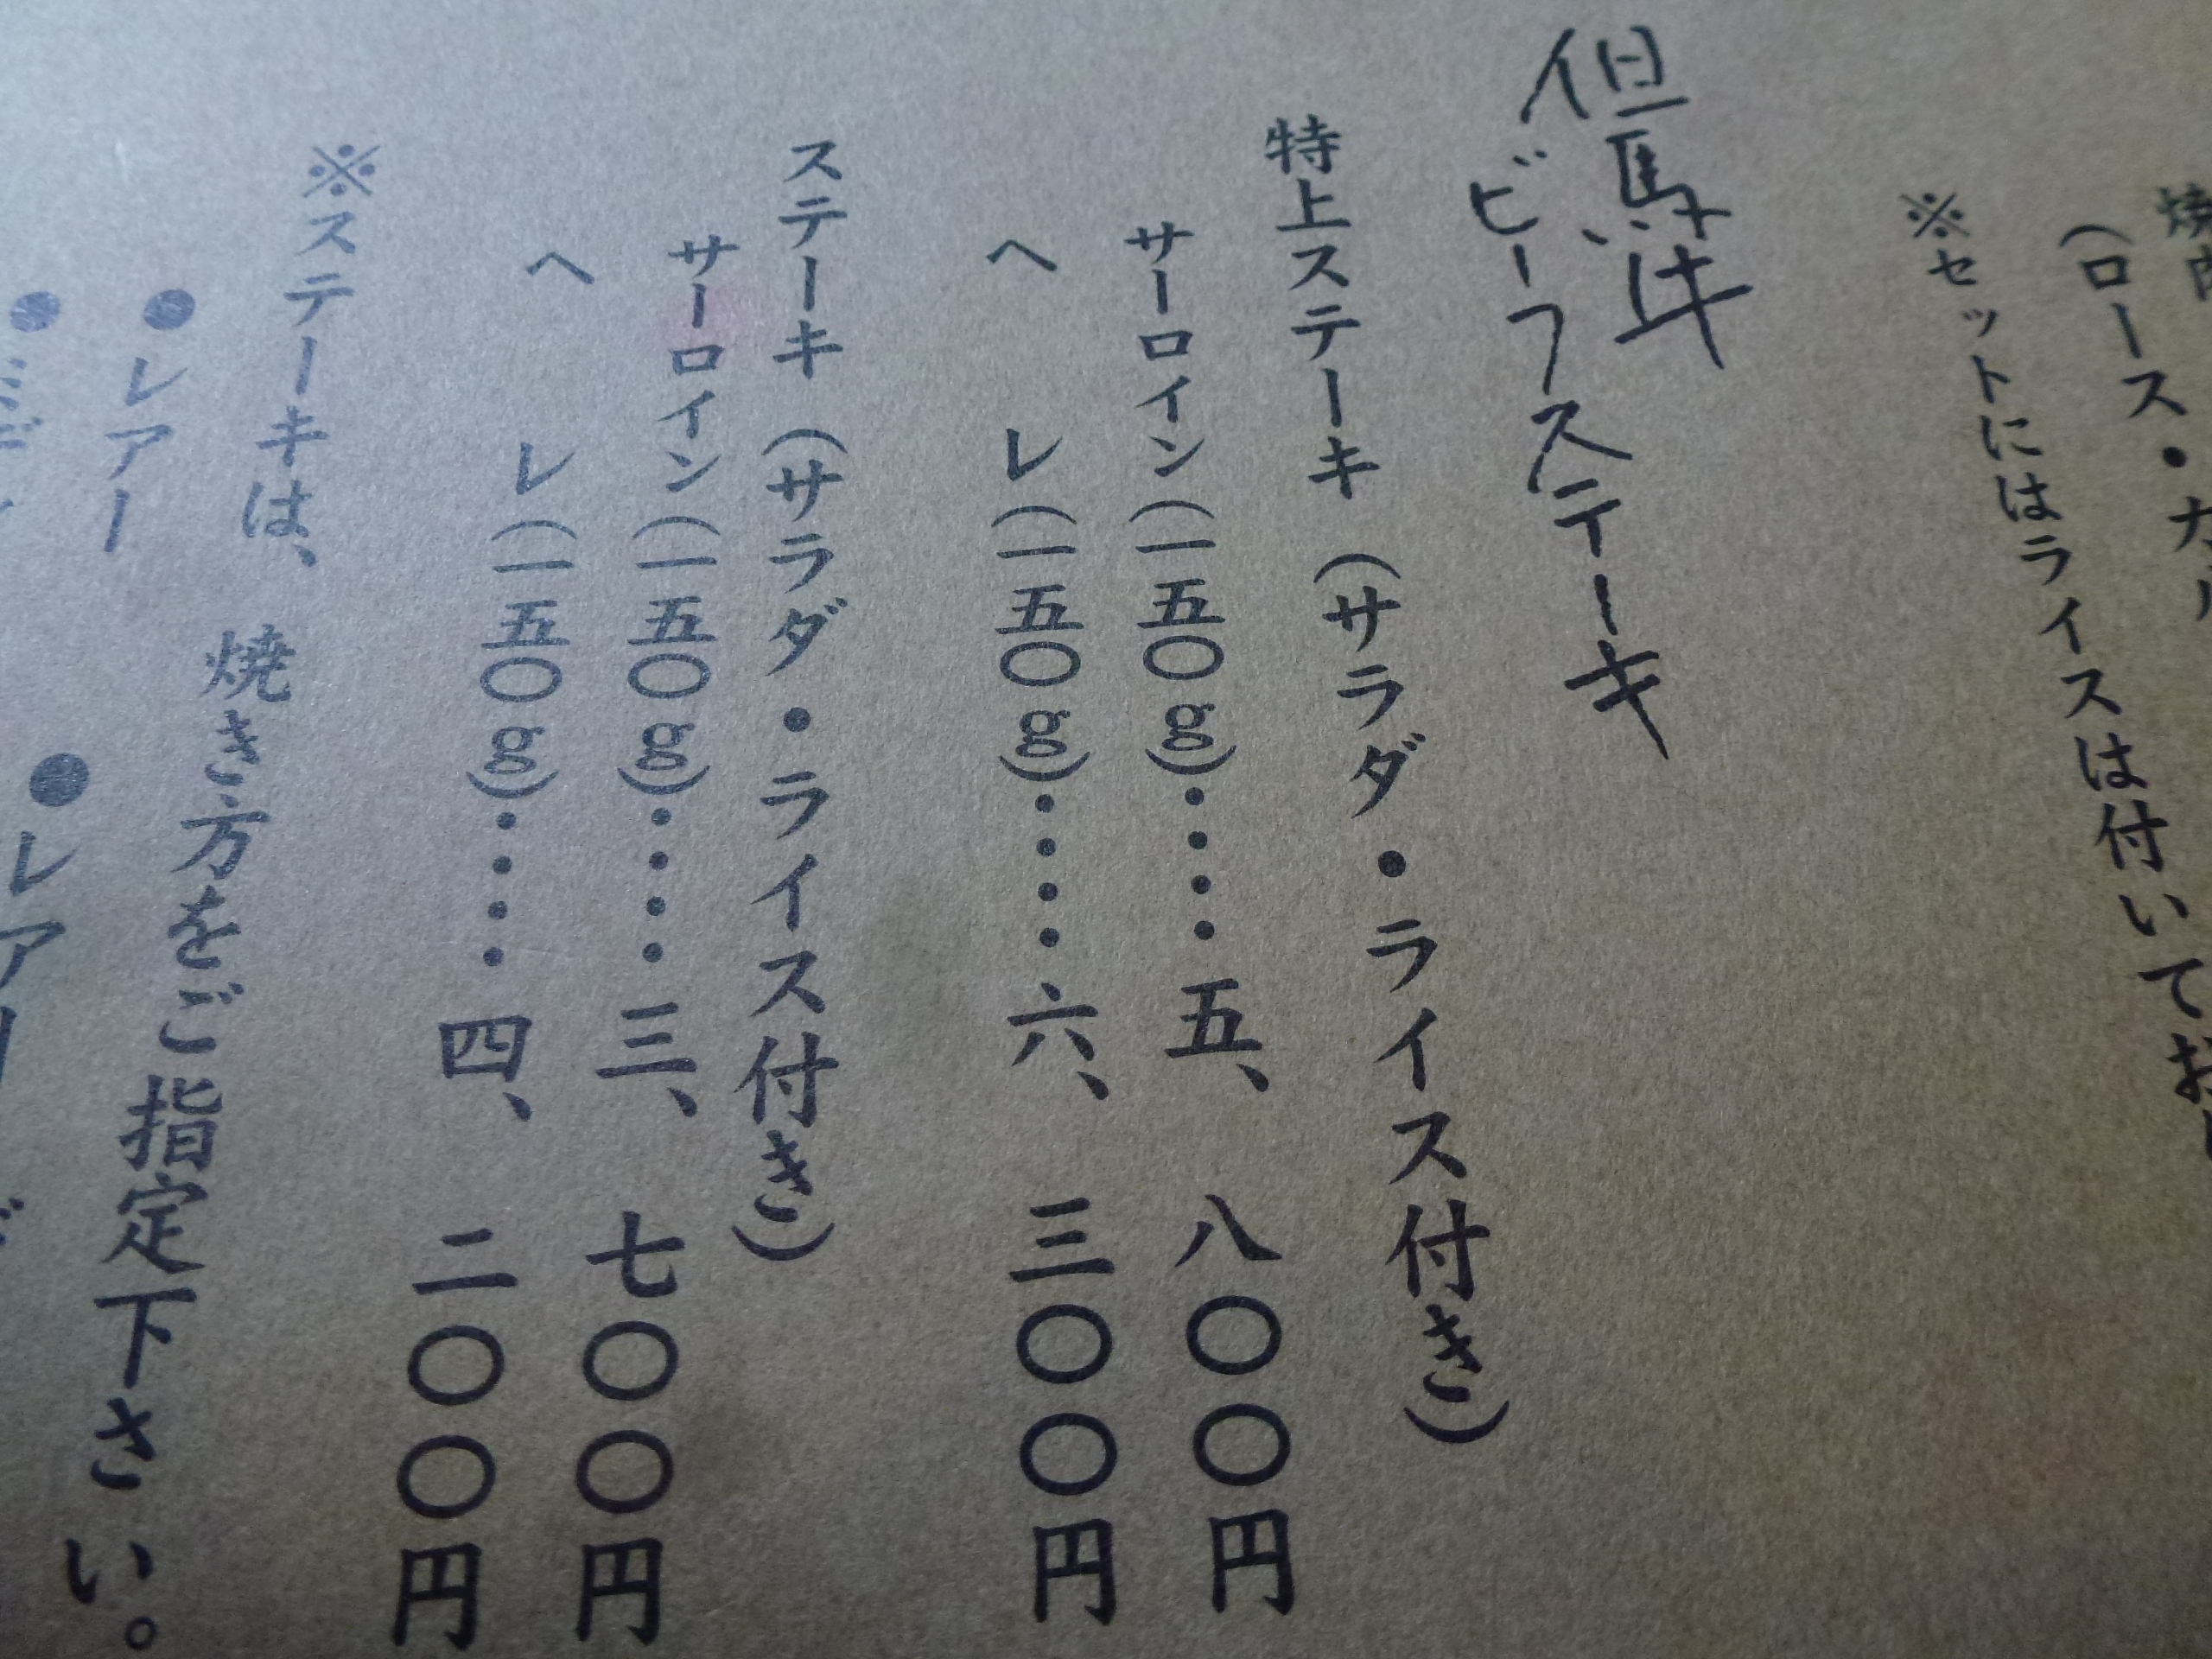 (ロース・カル
※セットにはライスは付いてお
但馬牛
ビーフステーキ
特上ステーキ(サラダ・ライス付き)
サーロイン(一五〇g)・・・・五、八〇〇円
ヘレ(一五〇g)・・・・六、三〇〇円
ステーキ(サラダ・ライス付き)
サーロイン(一五〇g)・・・・三、七〇〇円
ヘレ(一五〇g)・・・・四、二〇〇円
※ステーキは、焼き方をご指定下さい。
●レアー
●レアー